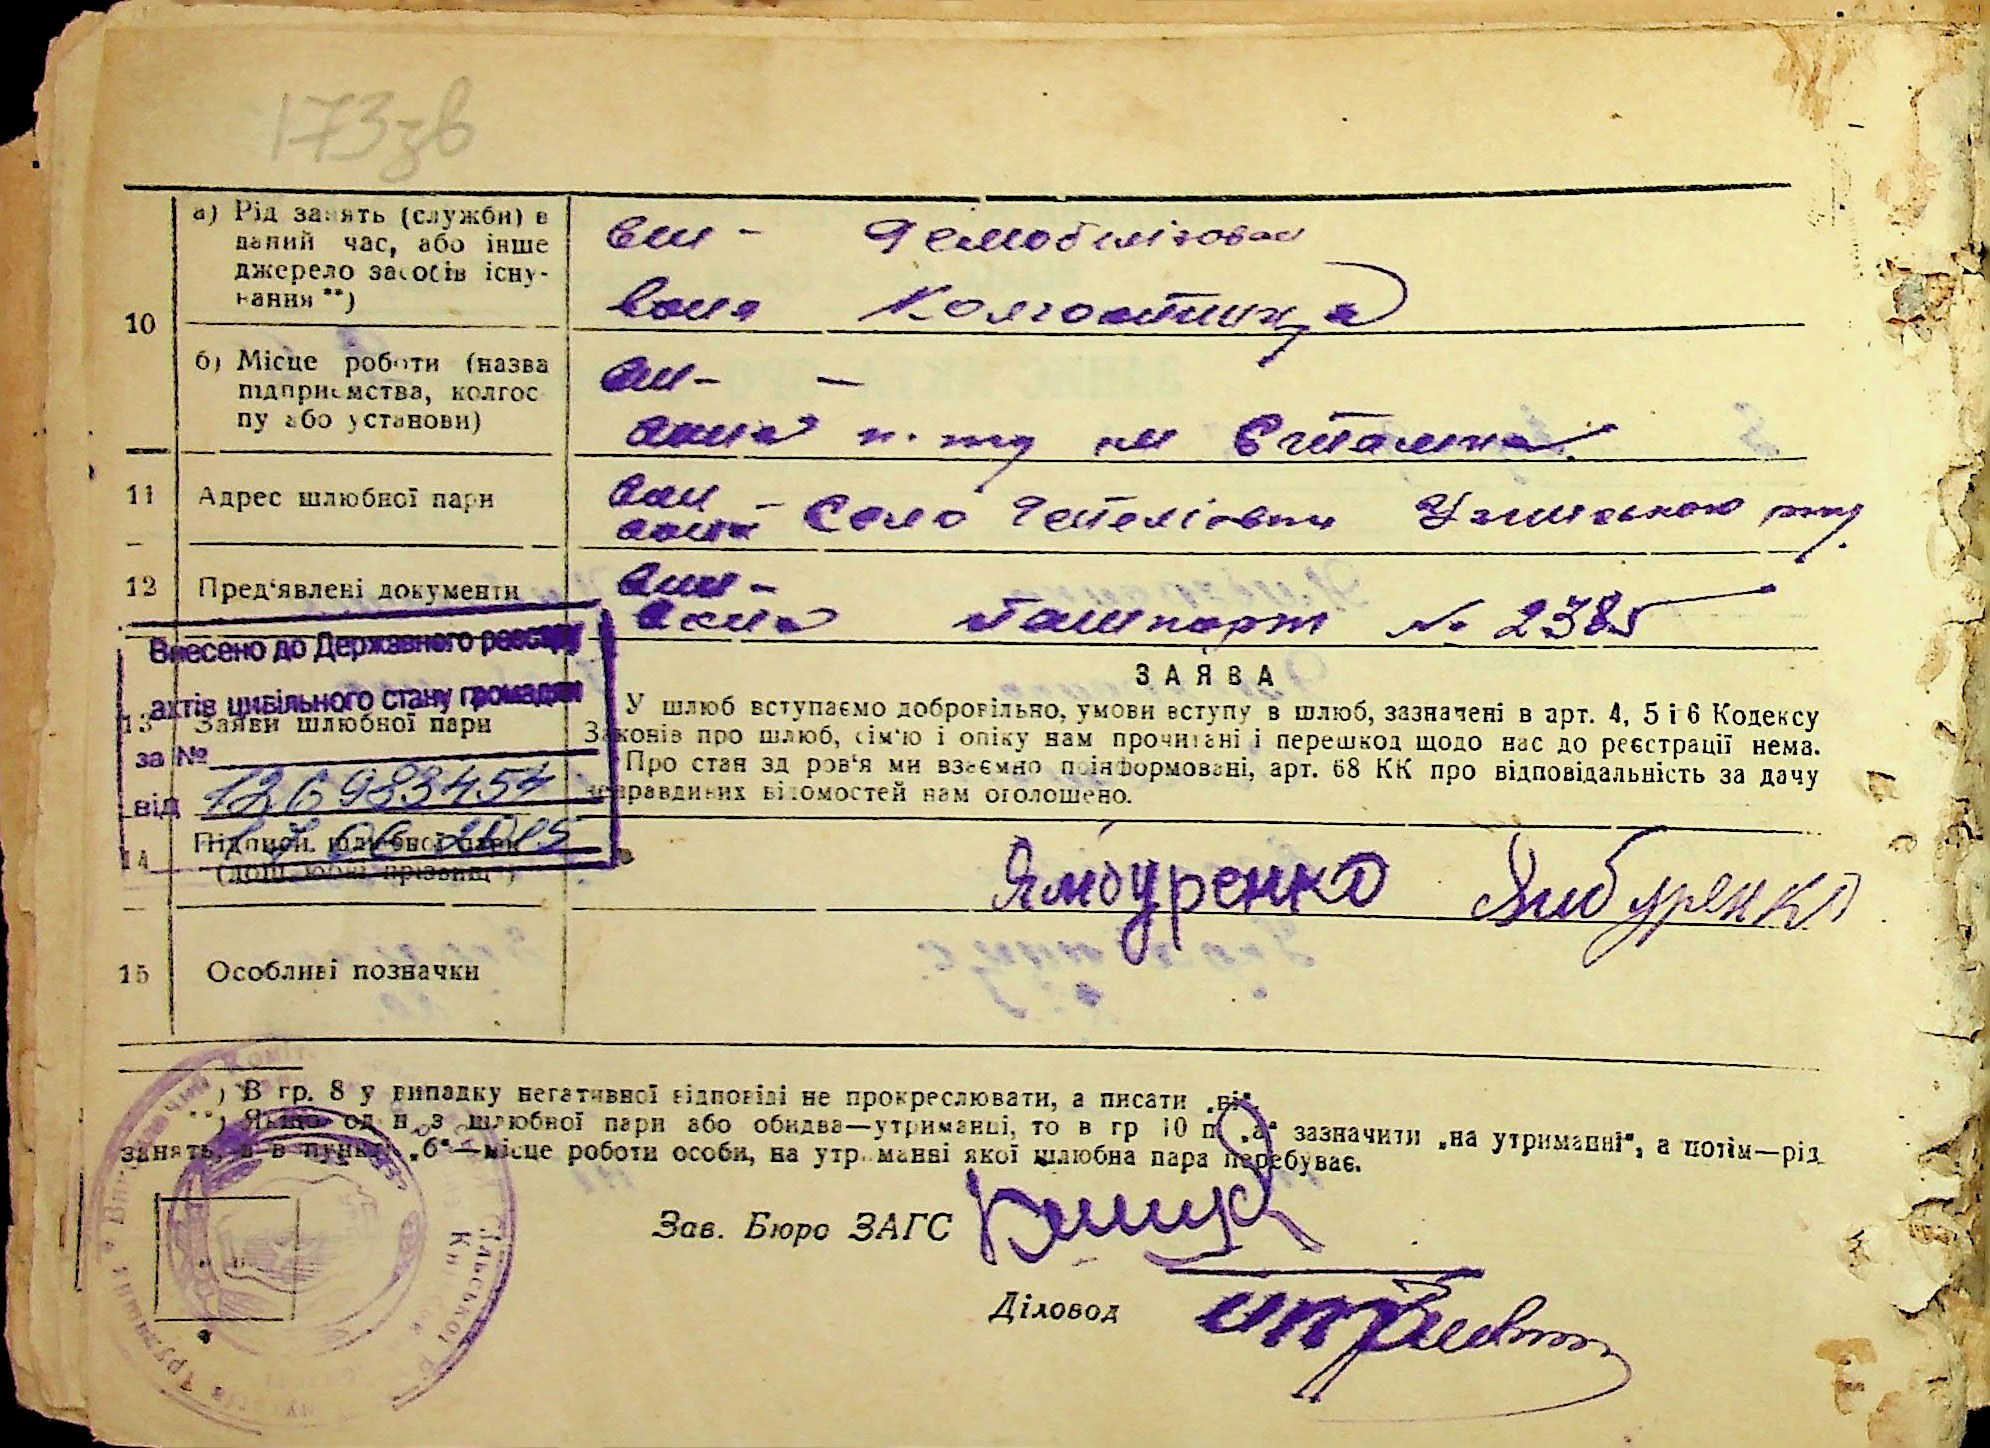 173зв
10
а) Рід занять (служби) в
даний час, або інше
джерело засобів існу-
вання **)
вин - Демобилізован
вона Колгоспниця
б) Місце роботи (назва
підприємства, колгос-
пу або установи)
вин - -
вона к-ту им Сталина
11
Адрес шлюбної пари
вин -
вона Село
12
Пред'явлені документи
вин -
вона Пашпорт № 2385
Внесено до Державного реєстру
актів цивільного стану громадян
за №
126983454
від
17 06 2015
13
Заяви шлюбної пари
ЗАЯВА
У шлюб вступаємо добровільно, умови вступу в шлюб, зазначені в арт. 4, 5 і 6 Кодексу
Законів про шлюб, сім'ю і опіку нам прочитані і перешкод щодо нас до реєстрації нема.
Про стан здоров'я ми взаємно поінформовані, арт. 68 КК про відповідальність за дачу
неправдивих відомостей нам оголошено.
14
Підписи шлюбної пари
(дошлюбні прізвища)
Ямбуренко Ямбуренко
15
Особливі позначки
*) В гр. 8 у випадку негативної відповіді не прокреслювати, а писати „ні“.
**) Якщо один з шлюбної пари або обидва—утриманці, то в гр 10 п. „а“ зазначити „на утриманні“, а потім—рід
занять, а в пункті „б“—місце роботи особи, на утриманні якої шлюбна пара перебуває.
Зав. Бюро ЗАГС
Діловод